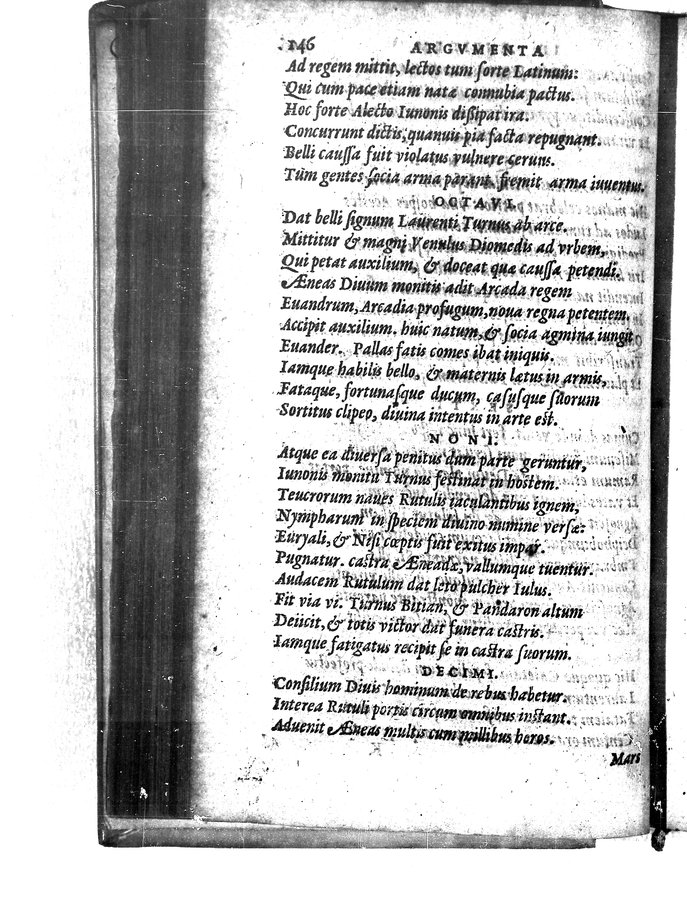 146 ARGVMENTA
Ad regem mittit, lectos tum sorte Latinum:
Qui cum pace etiam natæ connubia pactus.
Hoc forte Alecto Iunonis dißipat ira.
Concurrunt dictis, quanuis pia facta repugnant.
Belli caussa fuit violatus vulnere ceruus.
Tùm gentes socia arma parant, fremit arma iuuentus.
OCTAVI.
Dat belli signum Laurenti Turnus ab arce.
Mittitur & magni Venulus Diomedis ad vrbem,
Qui petat auxilium, & doceat qua caussa petendi.
Æneas Diuûm monitis adit Arcada regem
Euandrum, Arcadia profugum, noua regna petentem.
Accipit auxilium. huic natum, & socia agmina iungit
Euander. Pallas fatis comes ibat iniquis.
Iamque habilis bello, & maternis lætus in armis,
Fataque, fortunasque ducum, casusque suorum
Sortitus clipeo, diuina intentus in arte est.
NONI.
Atque ea diuersa penitus dum parte geruntur,
Iunonis monitu Turnus festinat in hostem.
Teucrorum naues Rutulis iaculantibus ignem,
Nympharum in speciem diuino numine versæ:
Euryali, & Nisi cœptis fuit exitus impar.
Pugnatur. castra Æneadæ, vallumque tuentur.
Audacem Rutulum dat leto pulcher Iulus.
Fit via vi. Turnus Bitian, & Pandaron altum
Deiicit, & totis victor dat funera castris.
Iamque fatigatus recipit se in castra suorum.
DECIMI.
Consilium Diuis hominum de rebus habetur.
Interea Rutuli portis circum omnibus instant.
Aduenit Æneas multis cum millibus heros.
Mars